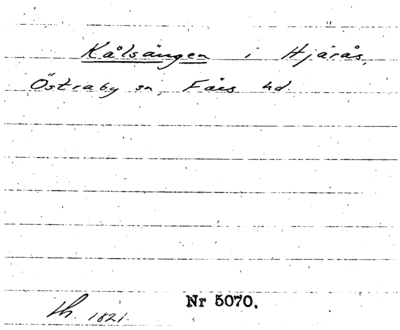 Kålsängen i Hjärås,
Östraby sn, Färs hd.
th. 1821. Nr 5070.